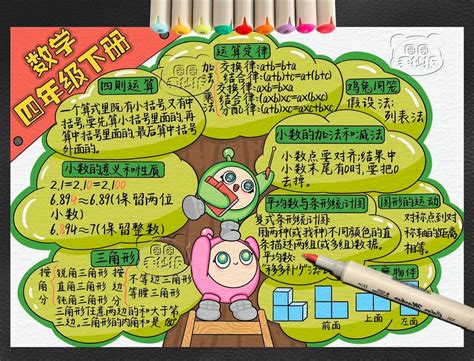 数学
四年级下册
四则运算
一个算式里既有小括号,又有中
括号,要先算小括号里面的,再
算中括号里面的,最后算中括号
外面的。
运算定律
加法
交换律:a+b=b+a
结合律:(a+b)+c=a+(b+c)
乘法
交换律:axb=bxa
结合律:(axb)xc=ax(bxc)
分配律:(a+b)xc=axc+bxc
鸡兔同笼
假设法;
列表法
小数的意义和性质
2.1=2.10=2.100
6.894≈6.89(保留两位
小数)
6.894≈7(保留整数)
小数的加法和减法
小数点要对齐;结果中
小数末尾有0时,要把0
去掉。
三角形
按角分
锐角三角形
直角三角形
钝角三角形
按边分
不等边三角形
等腰三角形
三角形任意两边的和大于第
三边。三角形的内角和是180°
平均数与条形统计图
复式条形统计图:
用两种(或多种)不同颜色的直
条描述两组(或多组)数据。
平均数:
"移多补少"法
图形的运动
对称点到对
称轴的距离
相等。
观察物体
前面
上面
左面